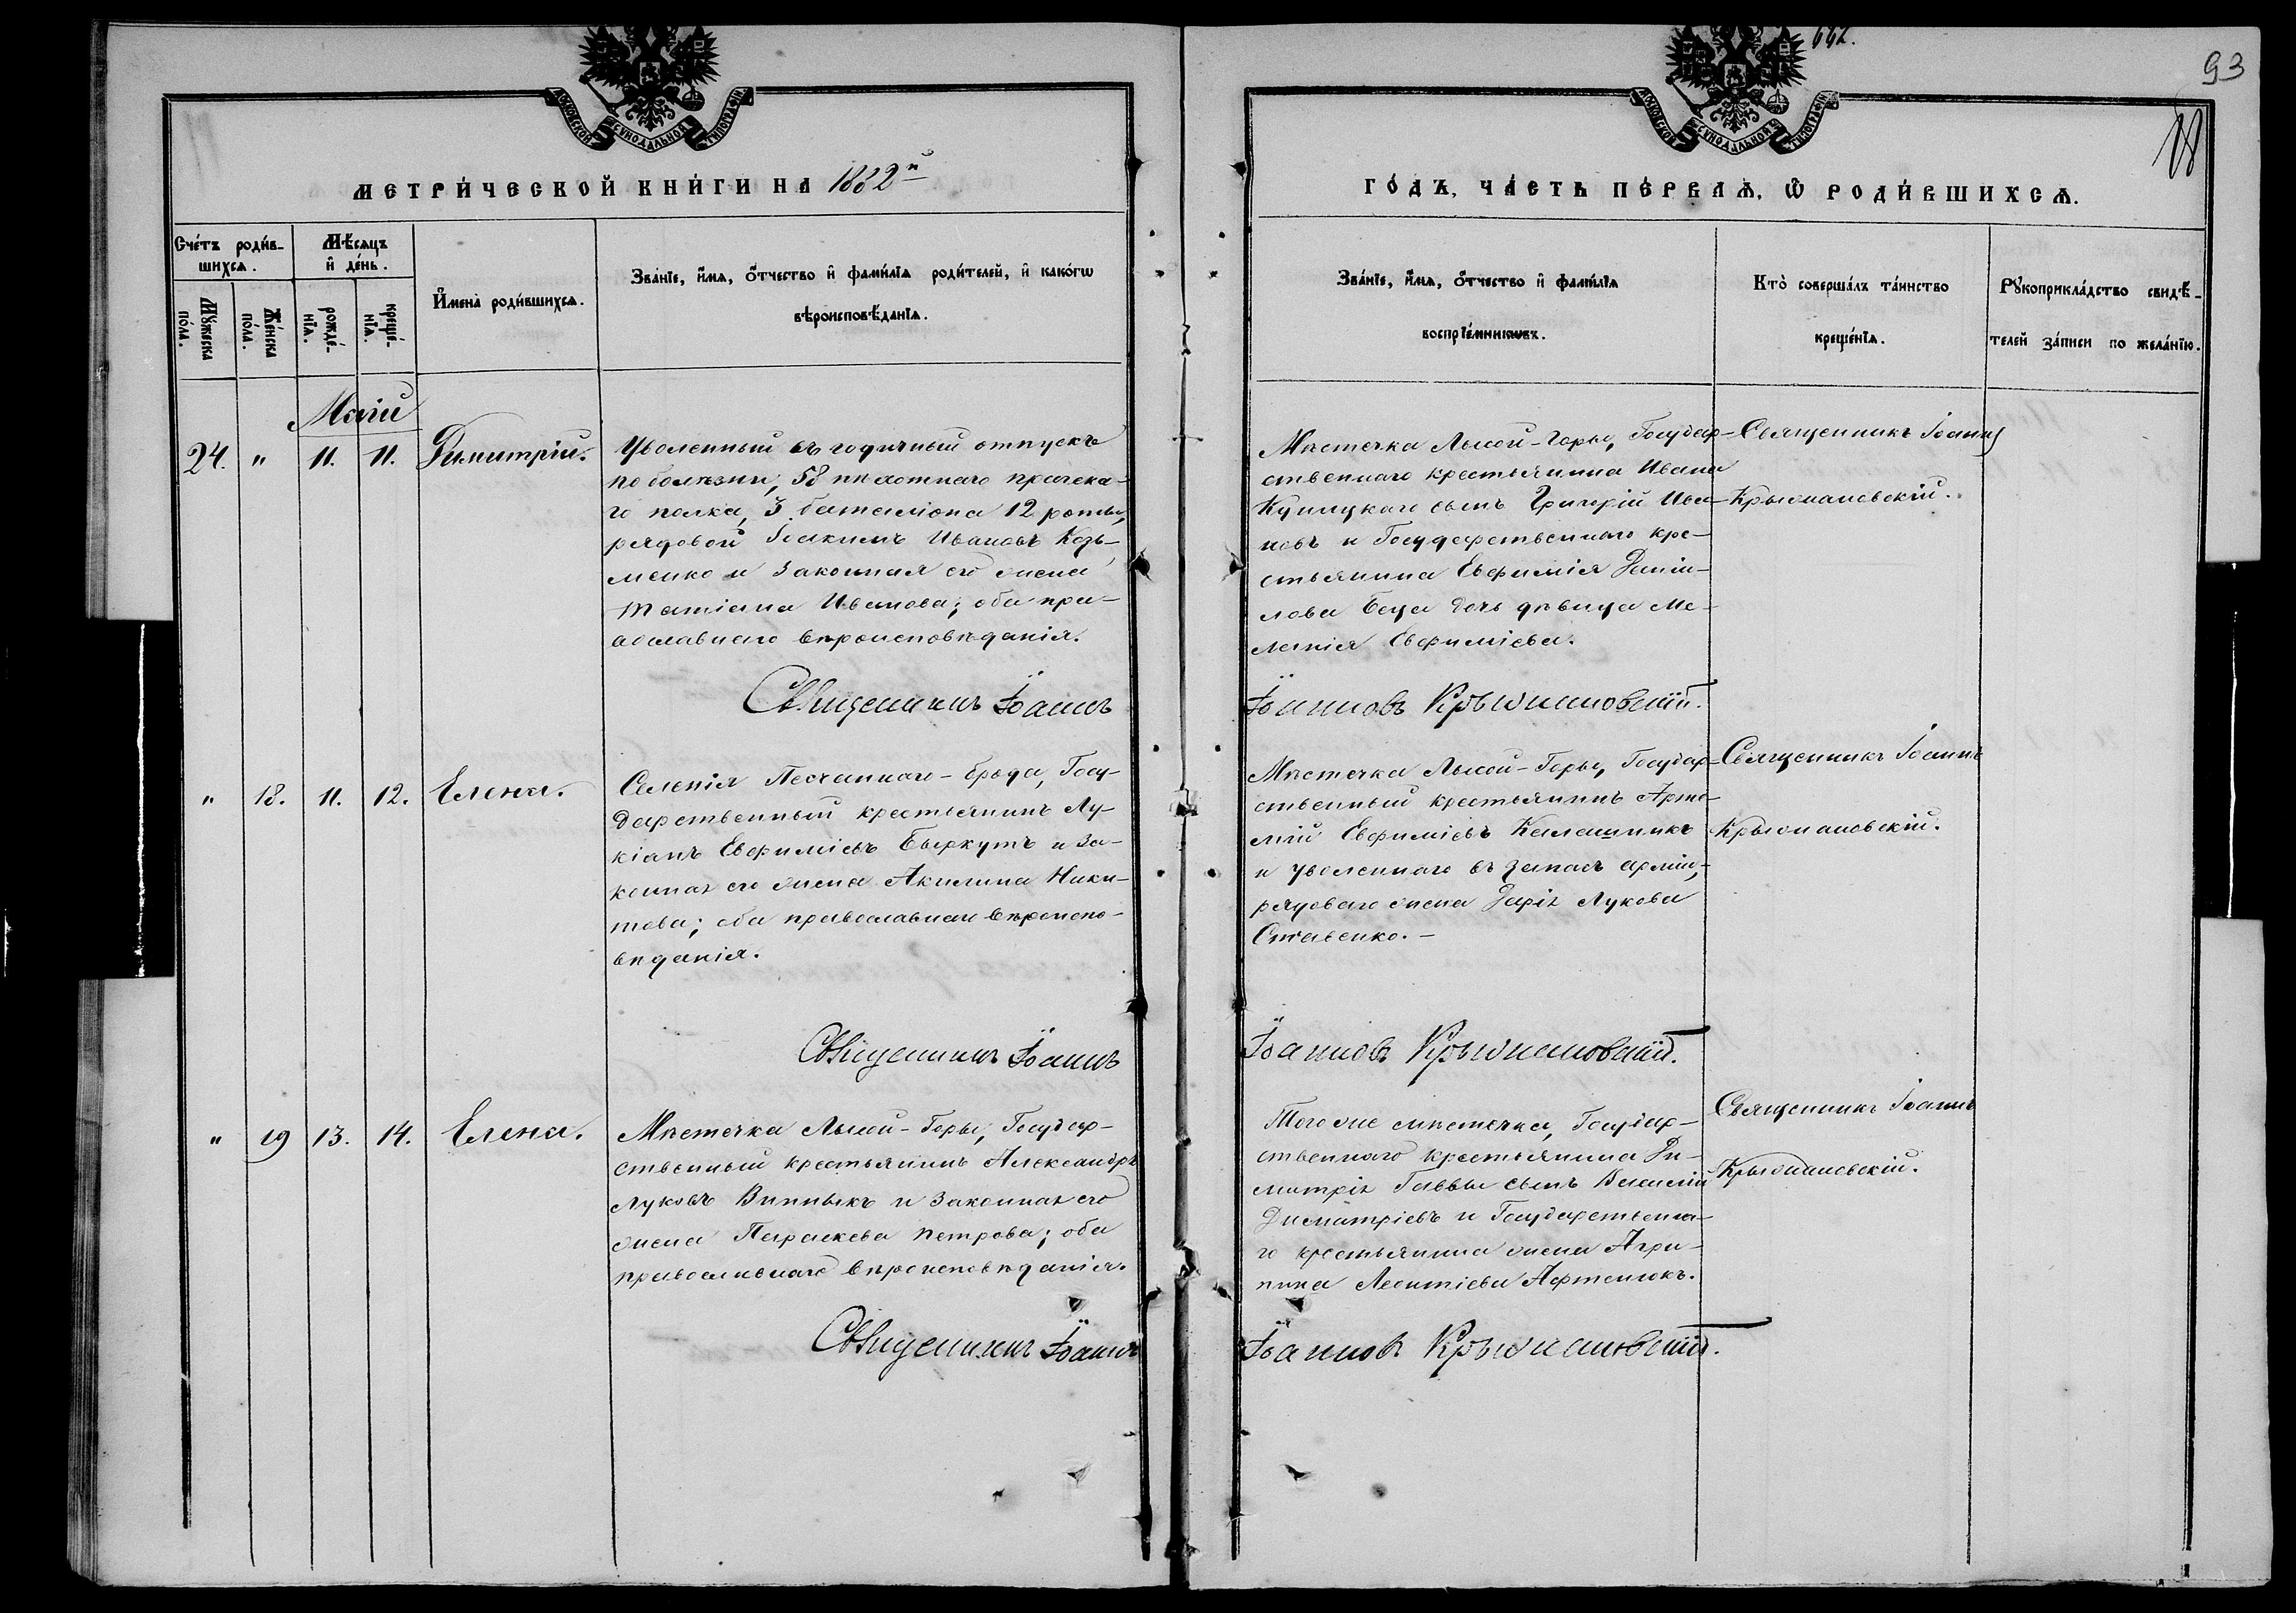 662.
93
МОСКОВСКОЙ СУНОДАЛЬНОЙ ТИПОГРАФІИ
МОСКОВСКОЙ СУНОДАЛЬНОЙ ТИПОГРАФІИ
МЕТРИ́ЧЕСКОЙ КНИ́ГИ НА 1882й
ГО́ДЪ, ЧА́СТЬ ПЕ́РВАѦ, Ѿ РОДИ́ВШИХСѦ.
Сче́тъ роди́в-
шихсѧ.
Мѣ́сѧцъ
и҆ де́нь.
Мꙋ́жеска
по́ла.
Же́нска
по́ла.
рожде́-
нїѧ.
креще́-
нїѧ.
И҆мена̀ роди́вшихсѧ.
Зва́нїе, и҆́мѧ, ѻ҆́тчество и҆ фами́лїѧ роди́телей, и҆ како́гѡ
вѣроисповѣ́данїѧ.
Зва́нїе, и҆́мѧ, ѻ҆́тчество и҆ фами́лїѧ
воспрїе́мникѡвъ.
Кто̀ соверша́лъ та́инство
креще́нїѧ.
Рꙋкоприкла́дство свидѣ́-
телей за́писи по жела́нїю.
Маій
24. " 11. 11. Димитрій.
Уволенный въ годичный отпускъ
по болѣзни, 58 пѣхотнаго прагска-
го полка, 3 баталіона 12 роты,
рядовой Іоакимъ Ивановъ Козь-
менко и законная его жена
Татіана Иванова; оба пра-
вославнаго вѣроисповѣданія.
Мѣстечка Лысой-Горы, Государ-
ственнаго крестьянина Ивана
Куницкаго сынъ Григорій Ива-
новъ и Государственнаго кре-
стьянина Евфимія Дани-
лова Беца дочь дѣвица Ме-
ланія Евфиміева.
Священникъ Іоаннъ
Крыжановскій.
Священникъ Іоаннъ
Іоанновъ Крыжановскій.
" 18. 11. 12. Елена.
Селенія Песчаннаго-Брода, Госу-
дарственный крестьянинъ Лу-
кіанъ Евфиміевъ Быркутъ и За-
конная его жена Акилина Ники-
това; оба православнаго вѣроиспо-
вѣданія.
Мѣстечка Лысой-Горы, Государ-
ственный крестьянинъ Арте-
мій Евфиміевъ Калашникъ
и уволеннаго въ запасъ арміи,
рядоваго жена Дарія Лукова
Ставенко. -
Священникъ Іоаннъ
Крыжановскій.
Священникъ Іоаннъ
Іоанновъ Крыжановскій.
" 19 13. 14. Елена.
Мѣстечка Лысой-Горы, Государ-
ственный крестьянинъ Александръ
Луковъ Винныкъ и Законная его
жена Параскева Петрова; оба
православнаго вѣроисповѣданія.
Того же мѣстечка, Государ-
ственнаго крестьянина Ди-
митрія Саввы сынъ Василій
Димитріевъ и Государственна-
го крестьянина жена Агри-
пина Леонтіева Афтенюкъ.
Священникъ Іоаннъ
Крыжановскій.
Священникъ Іоаннъ
Іоанновъ Крыжановскій.